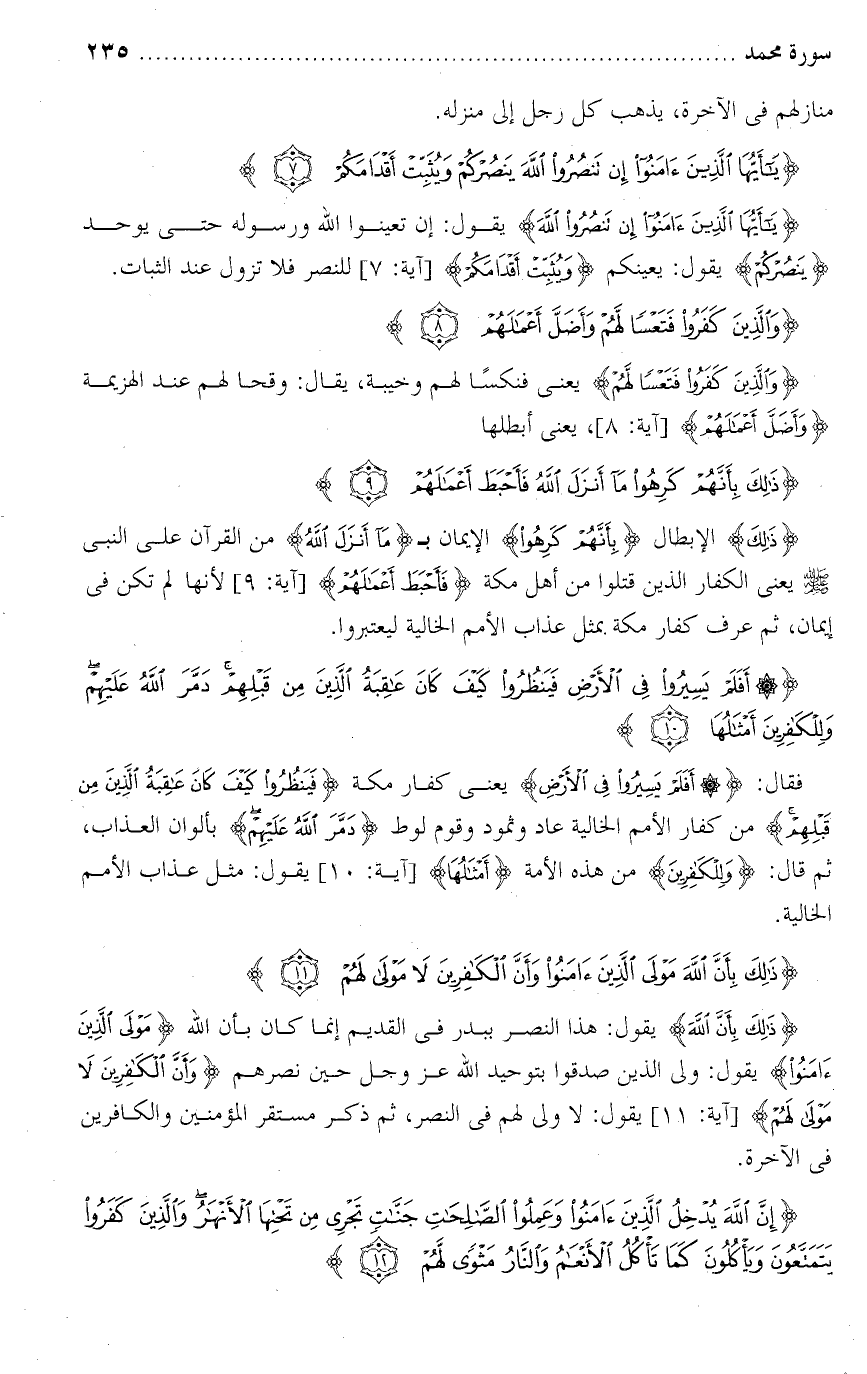 سورة محمد ............................................................ ٢٣٥
منازلهم فى الآخرة، يذهب كل رجل إلى منزله.
﴿يَٰٓأَيُّهَا ٱلَّذِينَ ءَامَنُوٓا۟ إِن تَنصُرُوا۟ ٱللَّهَ يَنصُرْكُمْ وَيُثَبِّتْ أَقْدَامَكُمْ ۝٧﴾
﴿يَٰٓأَيُّهَا ٱلَّذِينَ ءَامَنُوٓا۟ إِن تَنصُرُوا۟ ٱللَّهَ﴾ يقول: إن تعينوا الله ورسوله حتى يوحد
﴿يَنصُرْكُمْ﴾ يقول: يعينكم ﴿وَيُثَبِّتْ أَقْدَامَكُمْ﴾ [آية: ٧] للنصر فلا تزول عند الثبات.
﴿وَٱلَّذِينَ كَفَرُوا۟ فَتَعْسًا لَّهُمْ وَأَضَلَّ أَعْمَٰلَهُمْ ۝٨﴾
﴿وَٱلَّذِينَ كَفَرُوا۟ فَتَعْسًا لَّهُمْ﴾ يعنى فنكسًا لهم وخيبة، يقال: وقحا لهم عند الهزيمة
﴿وَأَضَلَّ أَعْمَٰلَهُمْ﴾ [آية: ٨]، يعنى أبطلها
﴿ذَٰلِكَ بِأَنَّهُمْ كَرِهُوا۟ مَآ أَنزَلَ ٱللَّهُ فَأَحْبَطَ أَعْمَٰلَهُمْ ۝٩﴾
﴿ذَٰلِكَ﴾ الإبطال ﴿بِأَنَّهُمْ كَرِهُوا۟﴾ الإيمان بـ﴿مَآ أَنزَلَ ٱللَّهُ﴾ من القرآن على النبى
ﷺ يعنى الكفار الذين قتلوا من أهل مكة ﴿فَأَحْبَطَ أَعْمَٰلَهُمْ﴾ [آية: ٩] لأنها لم تكن فى
إيمان، ثم عرف كفار مكة بمثل عذاب الأمم الخالية ليعتبروا.
﴿۞ أَفَلَمْ يَسِيرُوا۟ فِى ٱلْأَرْضِ فَيَنظُرُوا۟ كَيْفَ كَانَ عَٰقِبَةُ ٱلَّذِينَ مِن قَبْلِهِمْ ۚ دَمَّرَ ٱللَّهُ عَلَيْهِمْ ۖ
وَلِلْكَٰفِرِينَ أَمْثَٰلُهَا ۝١٠﴾
فقال: ﴿۞ أَفَلَمْ يَسِيرُوا۟ فِى ٱلْأَرْضِ﴾ يعنى كفار مكة ﴿فَيَنظُرُوا۟ كَيْفَ كَانَ عَٰقِبَةُ ٱلَّذِينَ مِن
قَبْلِهِمْ ۚ﴾ من كفار الأمم الخالية عاد وثمود وقوم لوط ﴿دَمَّرَ ٱللَّهُ عَلَيْهِمْ ۖ﴾ بألوان العذاب،
ثم قال: ﴿وَلِلْكَٰفِرِينَ﴾ من هذه الأمة ﴿أَمْثَٰلُهَا﴾ [آية: ١٠] يقول: مثل عذاب الأمم
الخالية.
﴿ذَٰلِكَ بِأَنَّ ٱللَّهَ مَوْلَى ٱلَّذِينَ ءَامَنُوا۟ وَأَنَّ ٱلْكَٰفِرِينَ لَا مَوْلَىٰ لَهُمْ ۝١١﴾
﴿ذَٰلِكَ بِأَنَّ ٱللَّهَ﴾ يقول: هذا النصر ببدر فى القديم إنما كان بأن الله ﴿مَوْلَى ٱلَّذِينَ
ءَامَنُوا۟﴾ يقول: ولى الذين صدقوا بتوحيد الله عز وجل حين نصرهم ﴿وَأَنَّ ٱلْكَٰفِرِينَ لَا
مَوْلَىٰ لَهُمْ﴾ [آية: ١١] يقول: لا ولى لهم فى النصر، ثم ذكر مستقر المؤمنين والكافرين
فى الآخرة.
﴿إِنَّ ٱللَّهَ يُدْخِلُ ٱلَّذِينَ ءَامَنُوا۟ وَعَمِلُوا۟ ٱلصَّٰلِحَٰتِ جَنَّٰتٍ تَجْرِى مِن تَحْتِهَا ٱلْأَنْهَٰرُ ۖ وَٱلَّذِينَ كَفَرُوا۟
يَتَمَتَّعُونَ وَيَأْكُلُونَ كَمَا تَأْكُلُ ٱلْأَنْعَٰمُ وَٱلنَّارُ مَثْوًى لَّهُمْ ۝١٢﴾